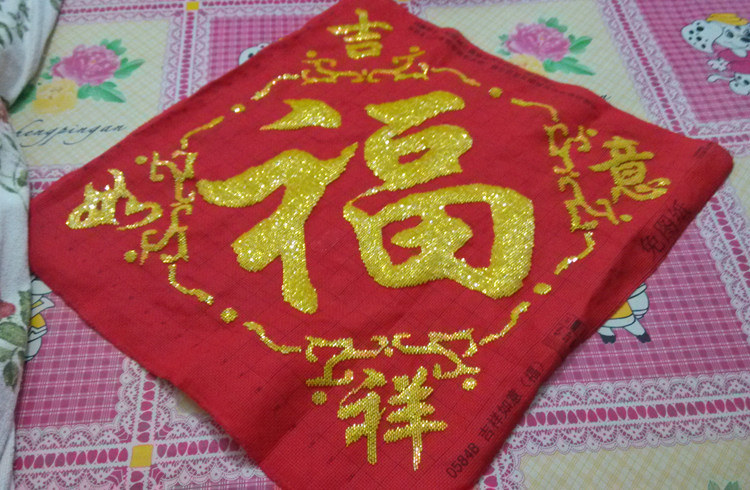 吉
福
如
意
祥
0584B 吉祥如意(福)